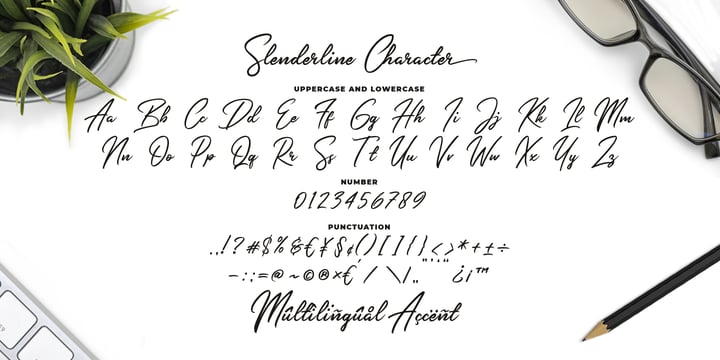 Slenderline Character
UPPERCASE AND LOWERCASE
Aa Bb Cc Dd Ee Ff Gg Hh Ii Jj Kk Ll Mm
Nn Oo Pp Qq Rr Ss Tt Uu Vv Ww Xx Yy Zz
NUMBER
0123456789
PUNCTUATION
..!?#$%&€¥$¢()[]{}<>*+±÷
-:;=@~©®×€´/\|„"'“‘¨¿¡™
Mûltiliñgûål Açcëñt